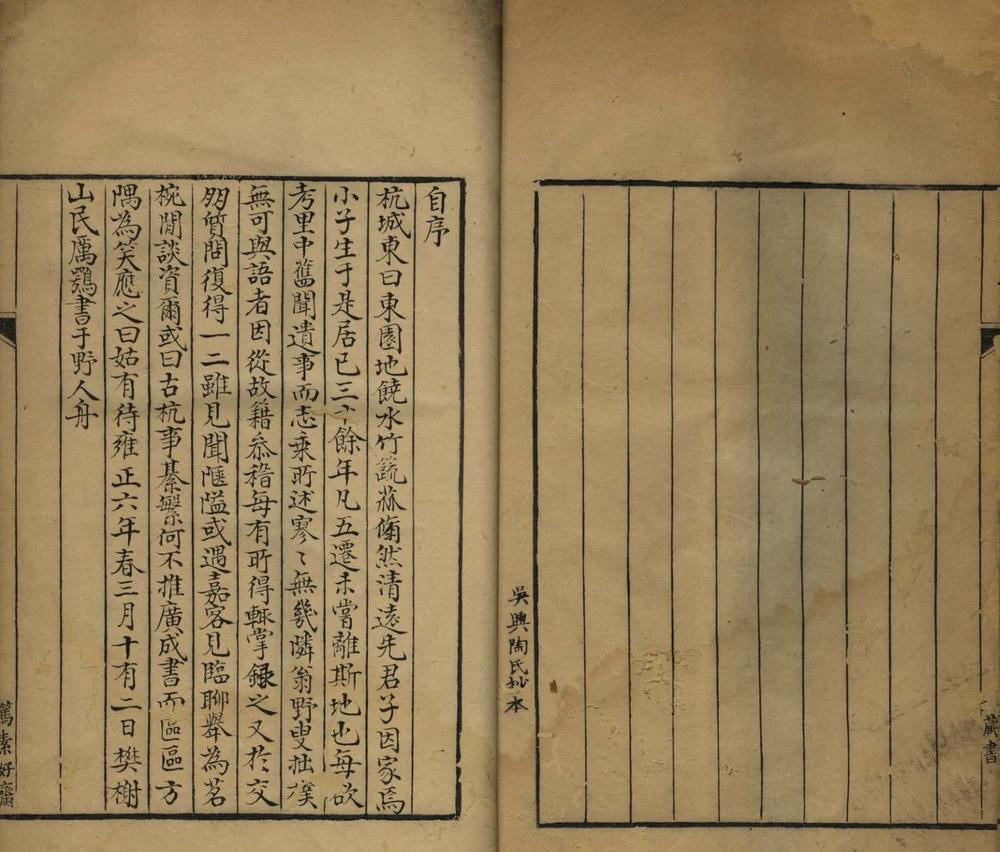 藏書
吳興陶氏抄本
自序
杭城東曰東園地饒水竹蔬蔴翛然清遠先君子因家焉
小子生于是居已三十餘年凡五遷未嘗離斯地也每欲
考里中舊聞遺事而志乗所述寥〻無幾隣翁野叟拙樸
無可與語者因從故籍叅稽每有所得輙掌録之又於交
朋質問復得一二雖見聞陿隘或遇嘉客見臨聊舉為茗
椀閒談資爾或曰古杭事綦繁何不推廣成書而區區方
隅為笑應之曰姑有待雍正六年春三月十有二日樊榭
山民厲鶚書于野人舟
篤素好齋